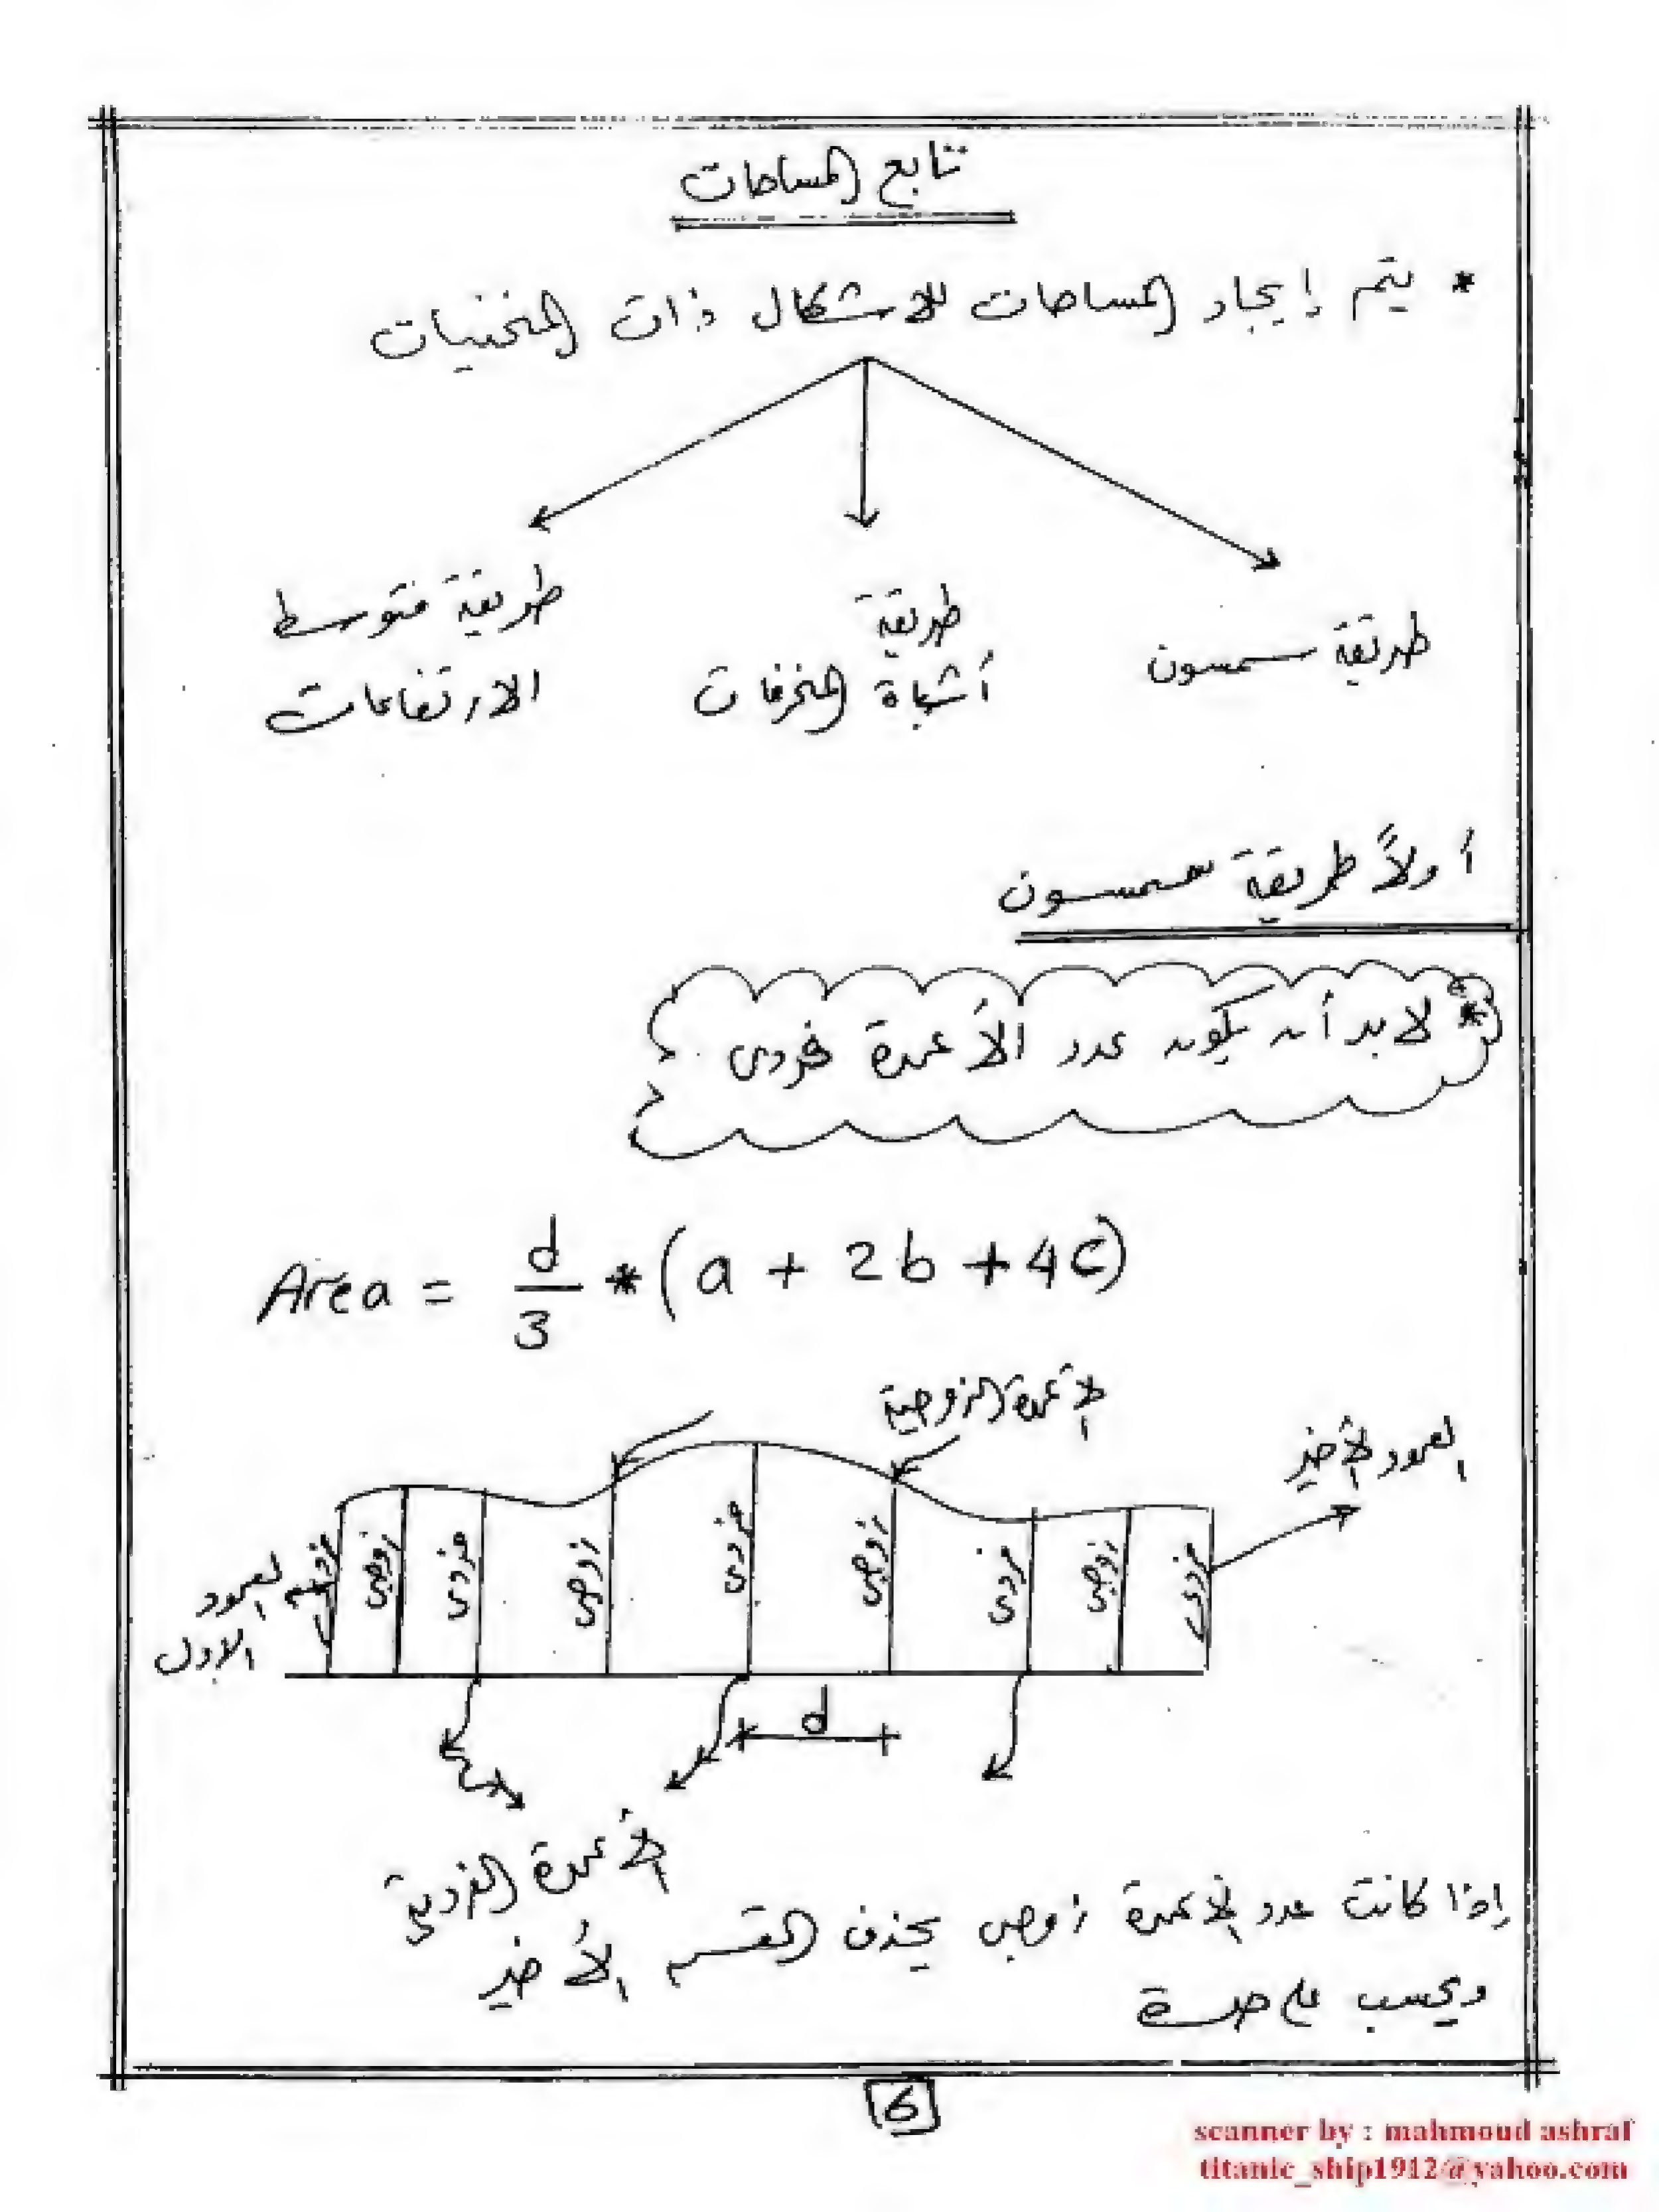 تابع المساحات
* يتم إيجاد المساحات للاشكال ذات المنحنيات
طريقة سمسون
طريقة
أشباة المنحرفات
طريقة متوسط
الارتفاعات
أولاً طريقة سمسون
* لابد أن يكون عدد الأعمدة فردى
Area = d/3 * (a + 2b + 4c)
الأعمدة الزوجية
العمود الأخير
العمود
الاول
فردى
زوجى
فردى
زوجى
فردى
زوجى
فردى
زوجى
فردى
d
الأعمدة الفردية
إذا كانت عدد الأعمدة زوجى يحذف القسم الأخير
ويحسب على حدة
6
scanner by : mahmoud ashraf
titanic_ship1912@yahoo.com